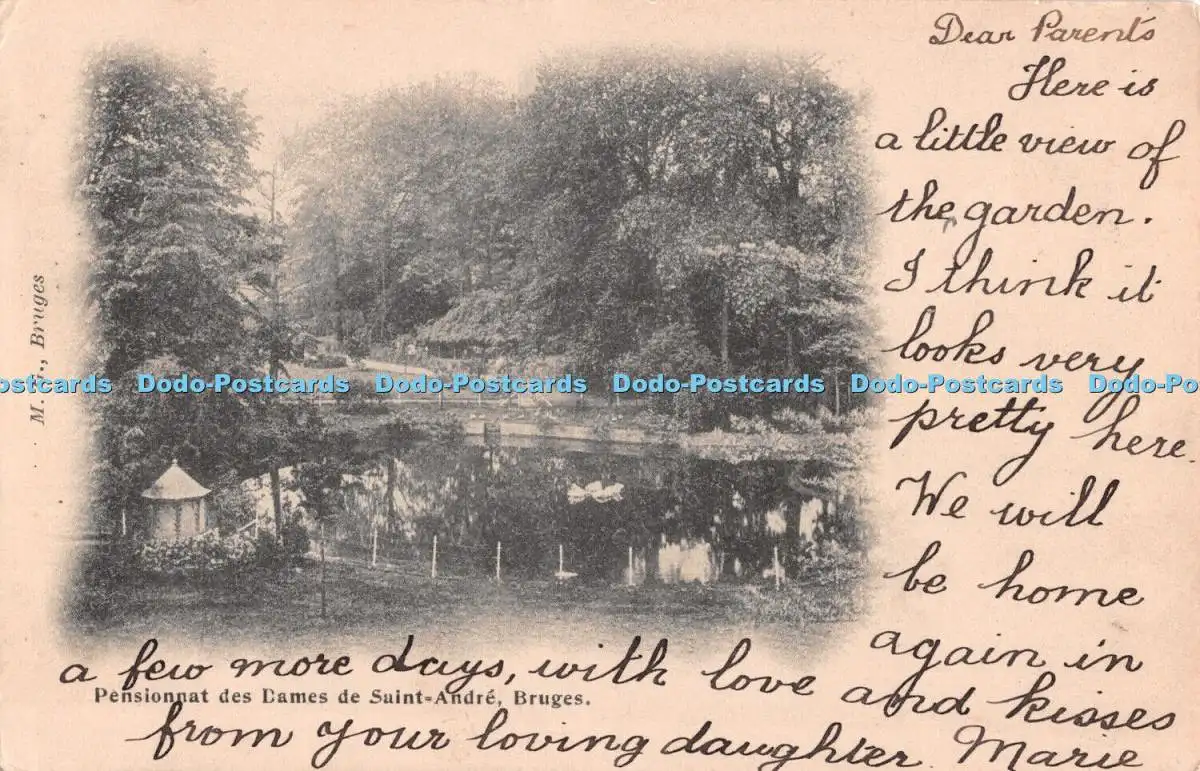 Dear Parents
Here is
a little view of
the garden.
I think it
looks very
pretty here.
We will
be home
again in
a few more days, with love and kisses
from your loving daughter Marie
Pensionnat des Dames de Saint-André, Bruges.
Bruges
Postcards Dodo-Postcards Dodo-Postcards Dodo-Postcards Dodo-Postcards